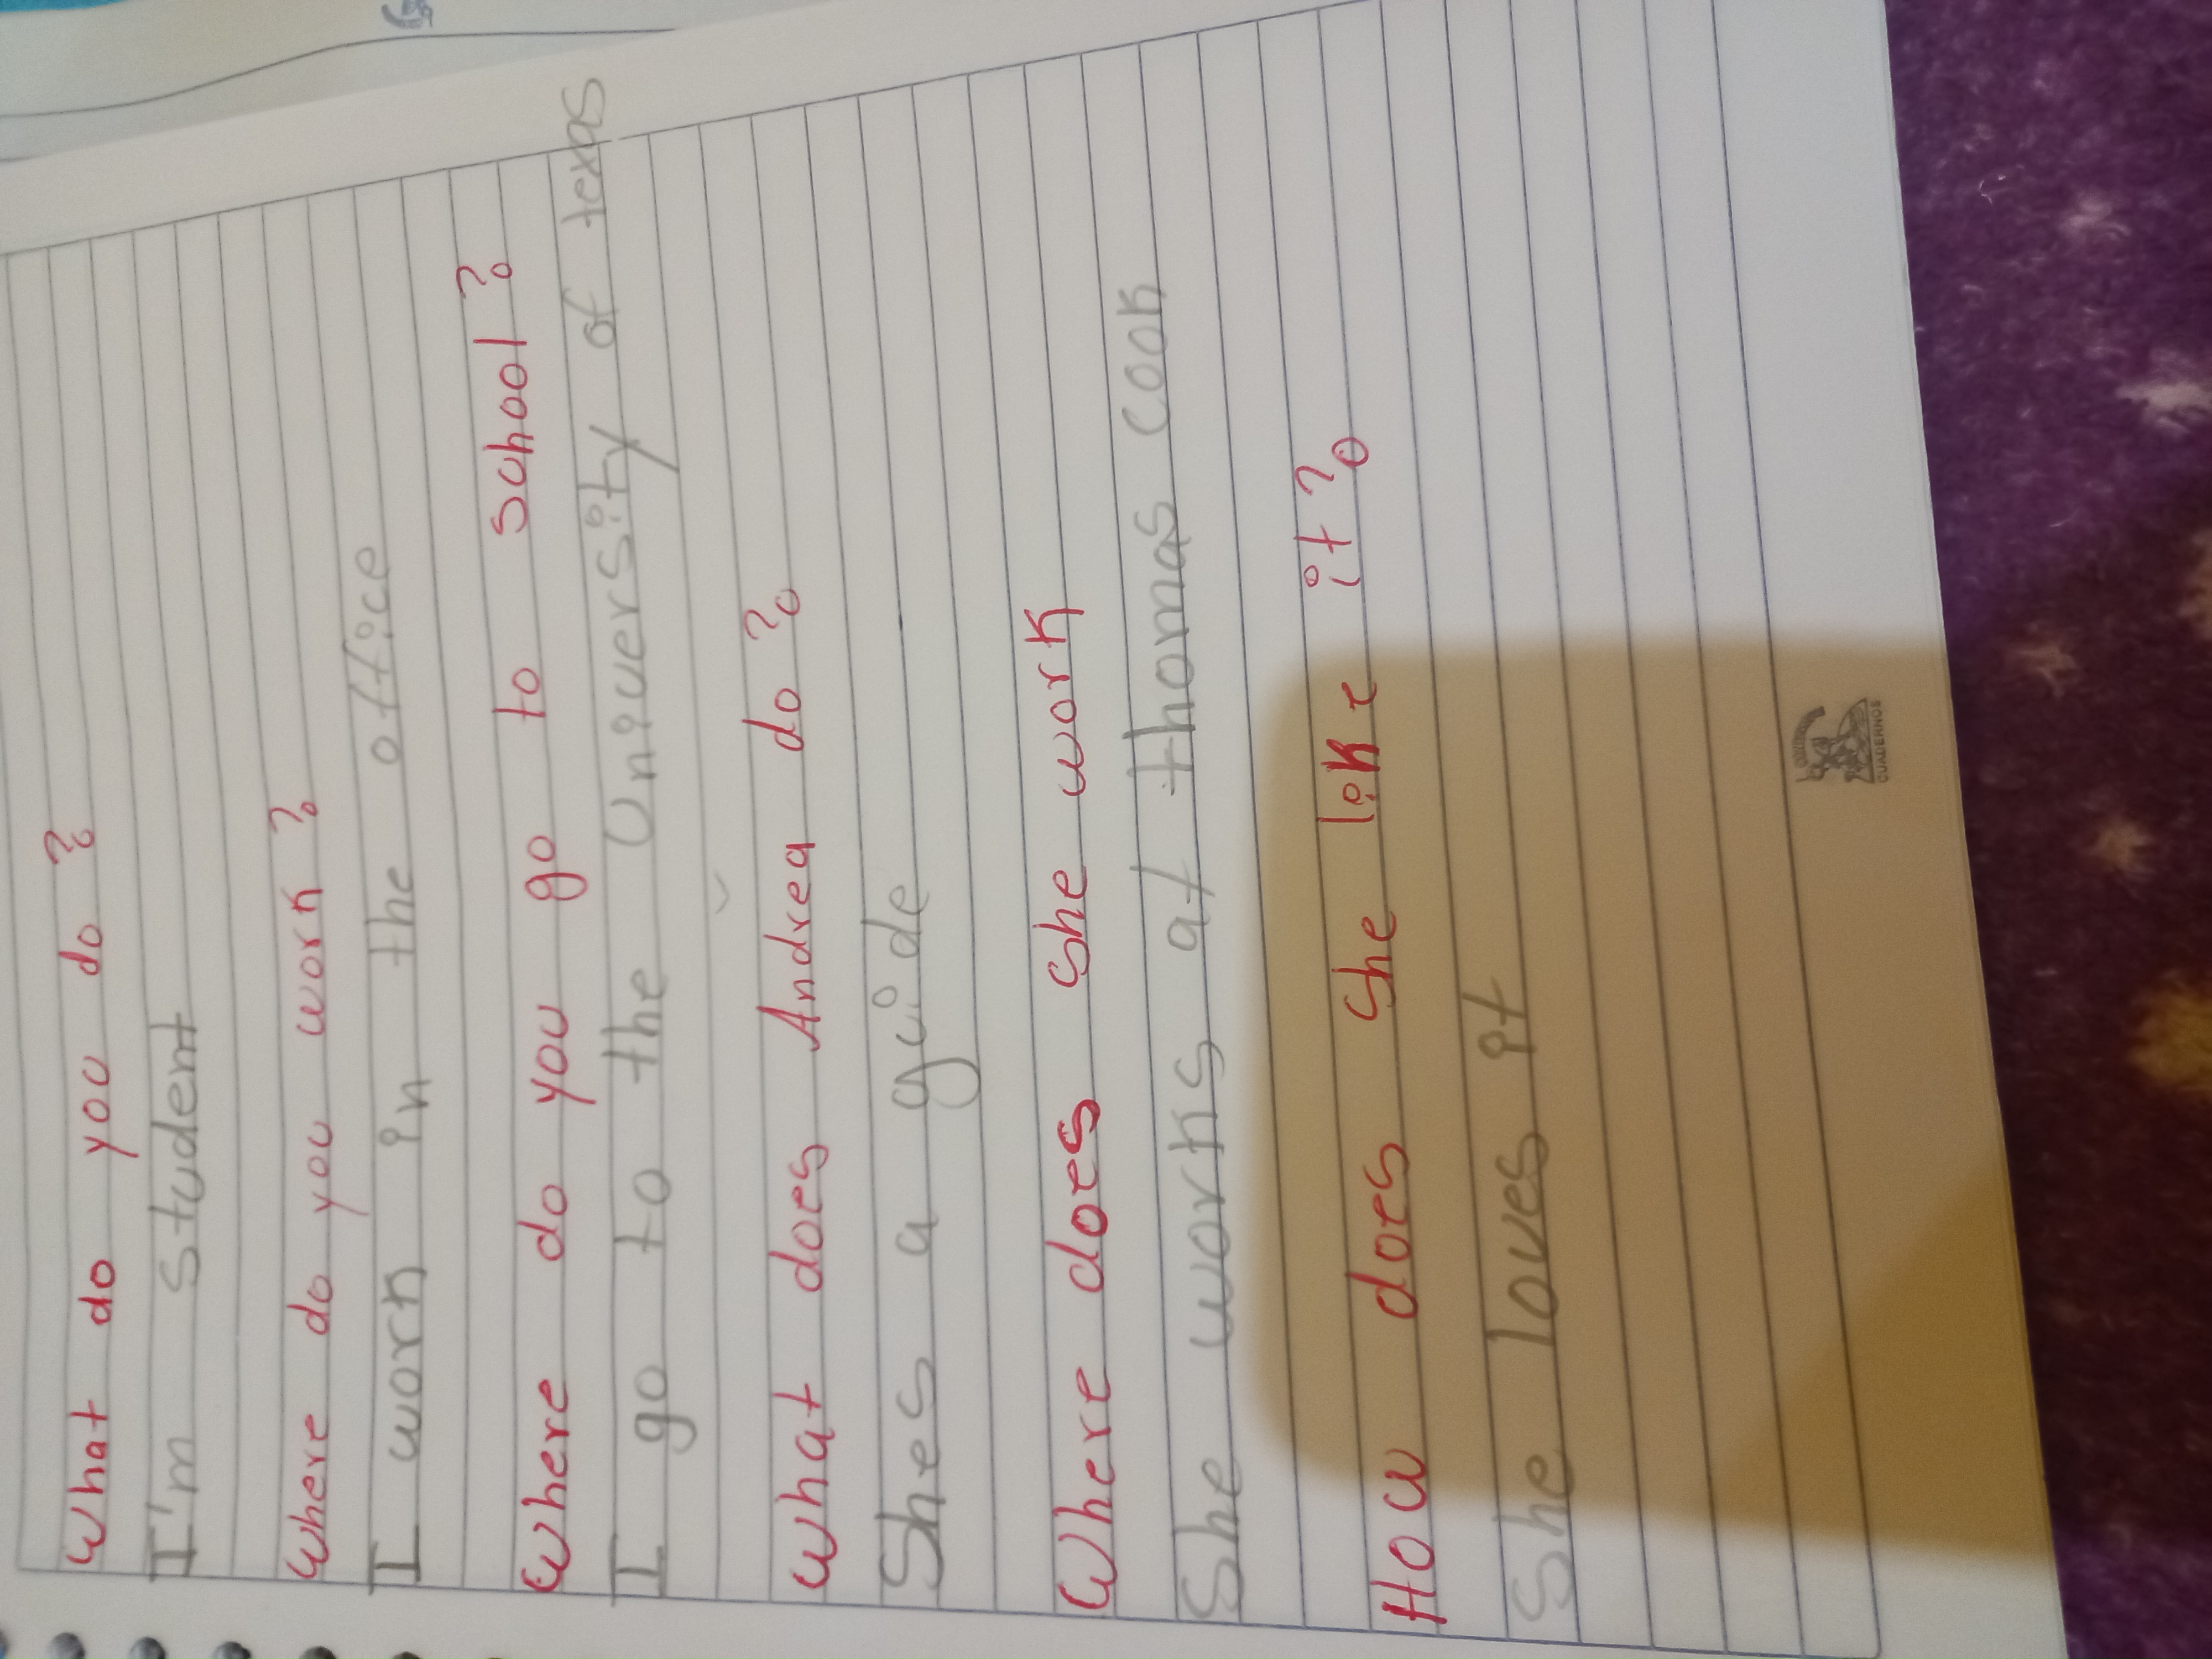 What do you do?
I'm student
Where do you work?
I work in the office
Where do you go to school?
I go to the University of texas
What does Andrea do?
Shes a guide
Where does she work
She works at thomas cook
How does she like it?
She loves it
CUADERNOS